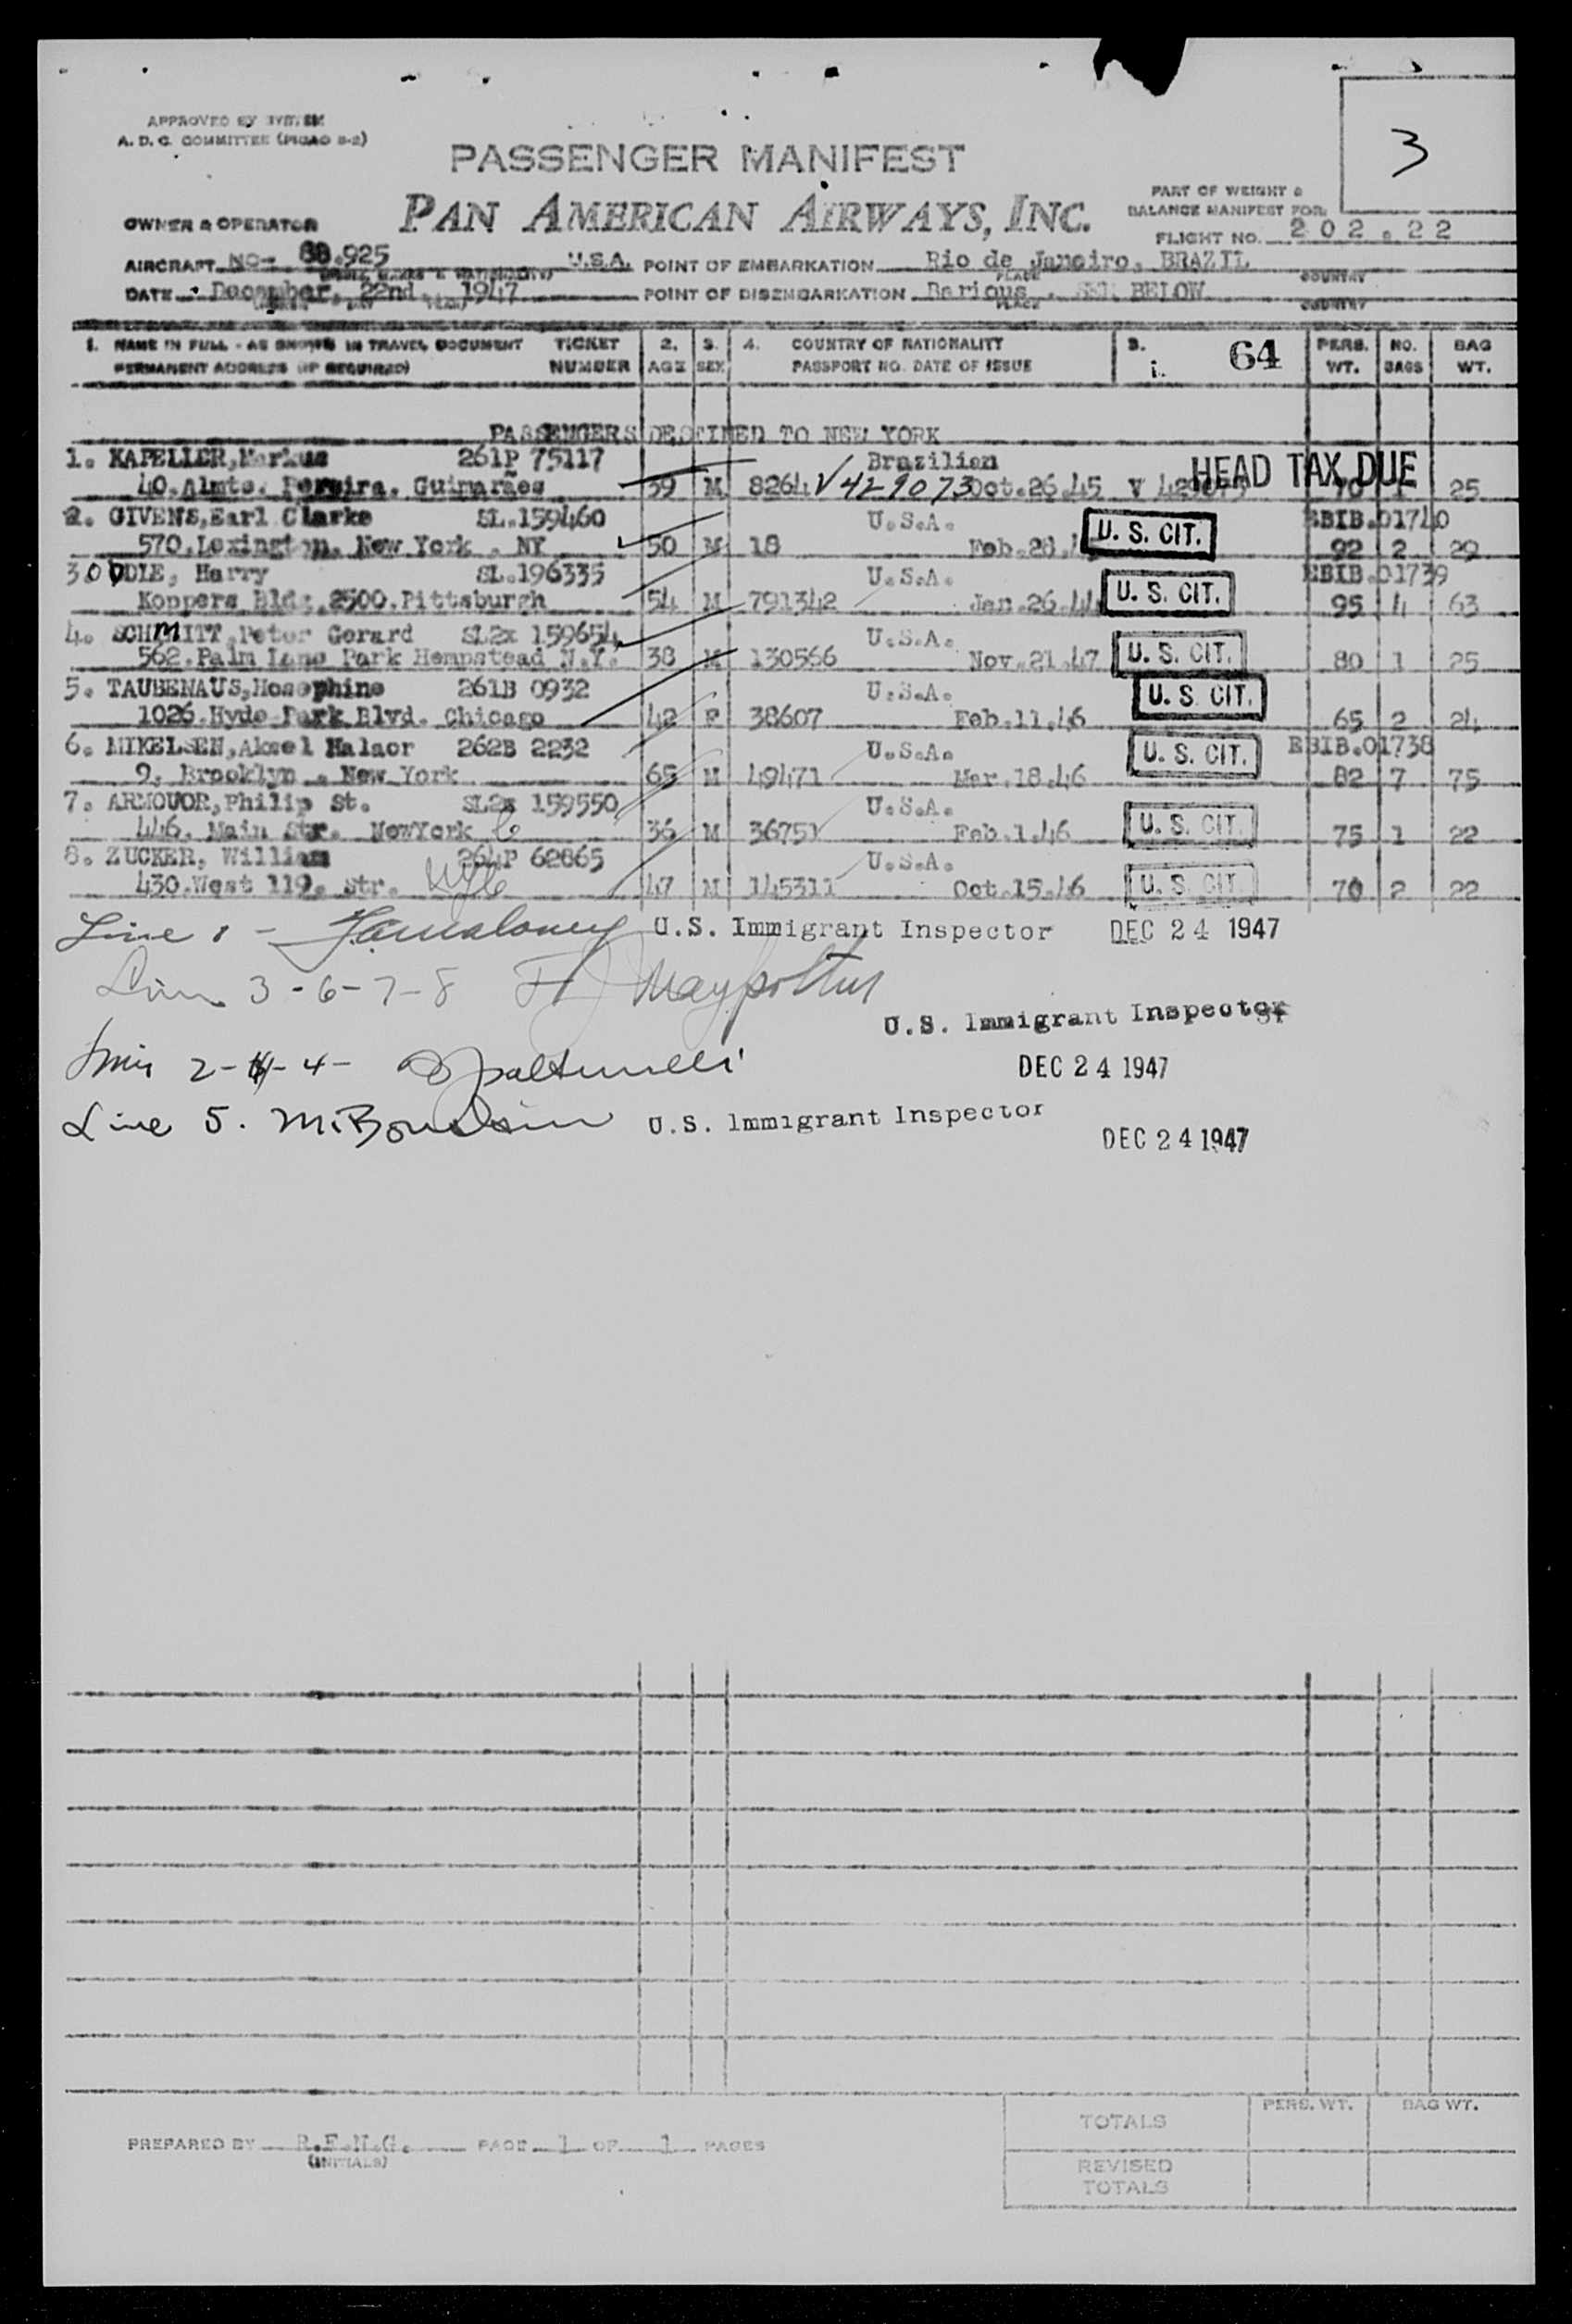 3
APPROVED BY SYSTEM
A. D. C. COMMITTEE (PICAO 8-2)
PASSENGER MANIFEST
PAN AMERICAN AIRWAYS, INC.
PART OF WEIGHT &
BALANCE MANIFEST FOR
OWNER & OPERATOR
FLIGHT NO. 202.22
AIRCRAFT NO- 88.925 U.S.A. POINT OF EMBARKATION Rio de Janeiro, BRAZIL
PLACE COUNTRY
DATE December, 22nd. 1947 POINT OF DISEMBARKATION Barious . SEE BELOW
PLACE COUNTRY
1. NAME IN FULL - AS SHOWN IN TRAVEL DOCUMENT TICKET 2. 3. 4. COUNTRY OF NATIONALITY 64 PERS. NO. BAG
PERMANENT ADDRESS (IF REQUIRED) NUMBER AGE SEX PASSPORT NO. DATE OF ISSUE WT. BAGS WT.
PASSENGERS DESTINED TO NEW YORK
1. KAPELLER, Markus 261P 75117 Brazilian HEAD TAX DUE
40. Almte. Pereira. Guimarães 39 M 8264 V429073 Oct.26.45 V 70 1 25
2. GIVENS, Earl Clarke SL.159460 U.S.A. EBIB.01740
570. Lexington. New York . NY 50 M 18 Feb.28. U. S. CIT. 92 2 29
3. ODDIE, Harry SL.196335 U.S.A. EBIB.01739
Koppers Bldg. 2500. Pittsburgh 54 M 791342 Jan.26.44 U. S. CIT. 95 4 63
4. SCHMITT, Peter Gerard SL2x 159654 U.S.A.
562. Palm Lane Park Hempstead N.Y. 38 M 130566 Nov.21.47 U. S. CIT. 80 1 25
5. TAUBENAUS, Hosephine 261B 0932 U.S.A.
1026. Hyde Park Blvd. Chicago 42 F 38607 Feb.11.46 U. S. CIT. 65 2 24
6. MIKELSEN, Aksel Halaor 262B 2232 U.S.A. EBIB.01738
9. Brooklyn . New York 65 M 49471 Mar.18.46 U. S. CIT. 82 7 75
7. ARMOUOR, Philip St. SL2x 159550 U.S.A.
446. Main Str. NewYork 36 M 36751 Feb.1.46 U. S. CIT. 75 1 22
8. ZUCKER, William 264P 62865 U.S.A.
430. West 119. Str. 47 M 145311 Oct.15.46 U. S. CIT. 70 2 22
Line 1 - U.S. Immigrant Inspector DEC 24 1947
Line 3-6-7-8
U.S. Immigrant Inspector
2- -4- DEC 24 1947
Line 5. U.S. Immigrant Inspector
DEC 24 1947
PERS. WT. BAG WT.
TOTALS
PREPARED BY R.F.N.G. PAGE 1 OF 1 PAGES
(INITIALS)
REVISED
TOTALS